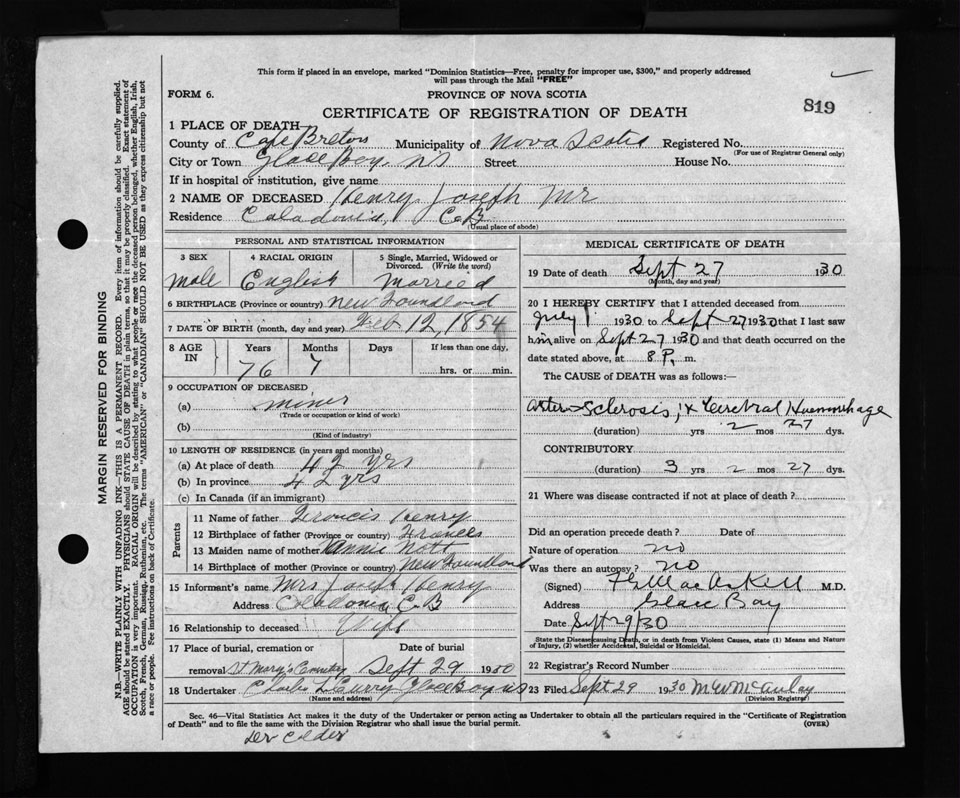 This form if placed in an envelope, marked "Dominion Statistics—Free, penalty for improper use, $300," and properly addressed
will pass through the Mail "FREE"
FORM 6. PROVINCE OF NOVA SCOTIA
819
CERTIFICATE OF REGISTRATION OF DEATH
1 PLACE OF DEATH—
County of Cape Breton Municipality of Nova Scotia Registered No.
(For use of Registrar General only)
City or Town Glace Bay N S Street House No.
If in hospital or institution, give name
2 NAME OF DECEASED Henry Joseph Mr
Residence Caladonia, C B
(Usual place of abode)
PERSONAL AND STATISTICAL INFORMATION
3 SEX 4 RACIAL ORIGIN 5 Single, Married, Widowed or Divorced. (Write the word)
Male English Married
6 BIRTHPLACE (Province or country) New Foundland
7 DATE OF BIRTH (month, day and year) Feb 12, 1854
8 AGE IN Years Months Days If less than one day,
76 7 hrs. or min.
9 OCCUPATION OF DECEASED
(a) miner
(Trade or occupation or kind of work)
(b)
(Kind of industry)
10 LENGTH OF RESIDENCE (in years and months)
(a) At place of death 42 yrs
(b) In province 42 yrs
(c) In Canada (if an immigrant)
Parents
11 Name of father Francis Henry
12 Birthplace of father (Province or country)
13 Maiden name of mother Nott
14 Birthplace of mother (Province or country) New Foundland
15 Informant's name Mrs Joseph Henry
Address Caladonia C B
16 Relationship to deceased Wife
17 Place of burial, cremation or Date of burial
removal St Mary's Cemetry Sept 29 1930
18 Undertaker Charles Curry Glace Bay NS
(Name and address)
MEDICAL CERTIFICATE OF DEATH
19 Date of death Sept 27 1930
(Month, day and year)
20 I HEREBY CERTIFY that I attended deceased from
July 1 1930 to Sept 27 1930 that I last saw
him alive on Sept 27 1930 and that death occurred on the
date stated above, at 8 P. m.
The CAUSE of DEATH was as follows:—
Arterio-Sclerosis, & Cerebral Haemorrhage
(duration) yrs 2 mos 27 dys.
CONTRIBUTORY
(duration) 3 yrs 2 mos 27 dys.
21 Where was disease contracted if not at place of death?
Did an operation precede death? Date of
Nature of operation no
Was there an autopsy? no
(Signed) MacAskill M.D.
Address Glace Bay
Date Sept 29/30
State the Disease causing Death, or in death from Violent Causes, state (1) Means and Nature
of Injury, (2) whether Accidental, Suicidal or Homicidal.
22 Registrar's Record Number
23 Filed Sept 29 1930 M W McAulay
(Division Registrar)
Sec. 46—Vital Statistics Act makes it the duty of the Undertaker or person acting as Undertaker to obtain all the particulars required in the "Certificate of Registration
of Death" and to file the same with the Division Registrar who shall issue the burial permit. (OVER)
Calder
MARGIN RESERVED FOR BINDING
N.B.—WRITE PLAINLY WITH UNFADING INK—THIS IS A PERMANENT RECORD. Every item of information should be carefully supplied.
AGE should be stated EXACTLY. PHYSICIANS should STATE CAUSE OF DEATH in plain terms, so that it may be properly classified. Exact statement of
OCCUPATION is very important. RACIAL ORIGIN will be described by stating to what people or race the deceased person belonged, whether English, Irish,
Scotch, French, German, Russian, Ruthenian, etc. The terms "AMERICAN" or "CANADIAN" SHOULD NOT BE USED as they express citizenship but not
a race or people. See instructions on back of Certificate.